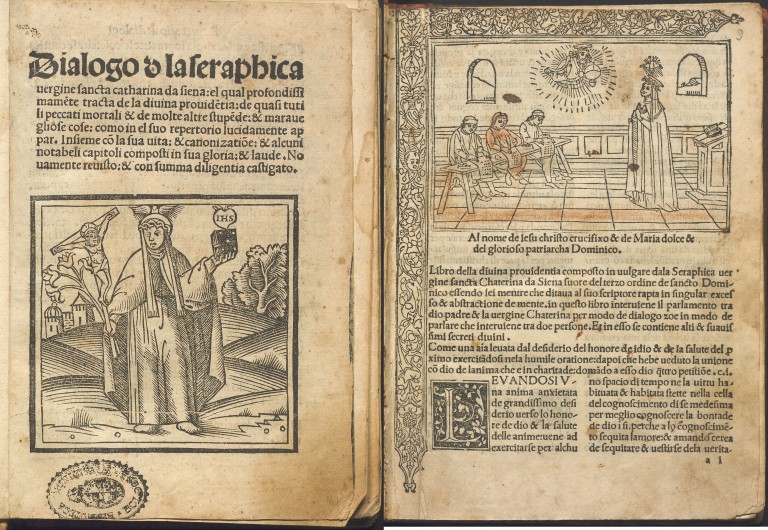 Dialogo d̄ la seraphica
uergine sancta catharina da siena: el qual profondissi
mamēte tracta de la diuina prouidētia: de quasi tuti
li peccati mortali & de molte altre stupēde: & maraue
gliose cose: como in el suo repertorio lucidamente ap
par. Insieme cō la sua uita: & canonizatiōe: & alcuni
notabeli capitoli composti in sua gloria: & laude. No
uamente reuisto: & con summa diligentia castigato.
IHS
9
Al nome de iesu christo crucifixo & de Maria dolce &
del glorioso patriarcha Dominico.
Libro della diuina prouidentia composto in uulgare dala Seraphica uer
gine sancta Chaterina da Siena suore del terzo ordine de sancto Domi-
nico essendo lei mentre che ditaua al suo scriptore rapta in singular exces
so & abstractione de mente. in questo libro interuiene il parlamento tra
dio padre & la uergine Chaterina per modo de dialogo zoe in modo de
parlare che interuiene tra doe persone. Et in esso se contiene alti & suauis
simi secreti diuini.
Come una aīa leuata dal desiderio del honore de idio & de la salute del p̄
ximo exercitādosi nela humile oratione: dapoi che hebe ueduto la unione
cō dio de lanima che e in charitade: domādo a esso dio q̄ttro petitiōe. c. i.
LEVANDOSI V
na anima anxietata
de grandissimo desi
derio uerso lo hono-
re de dio & la salute
delle anime: uene ad
exercitarse per alchu
no spacio di tempo ne la uirtu ha-
bituata & habitata stette nella cella
del cognoscimento di se medesima
per meglio cognoscere la bontade
de dio i si. perche a lo cōgnoscimē-
to sequita lamore: & amando cerca
de sequitare & uestirse dela uerita.
a i